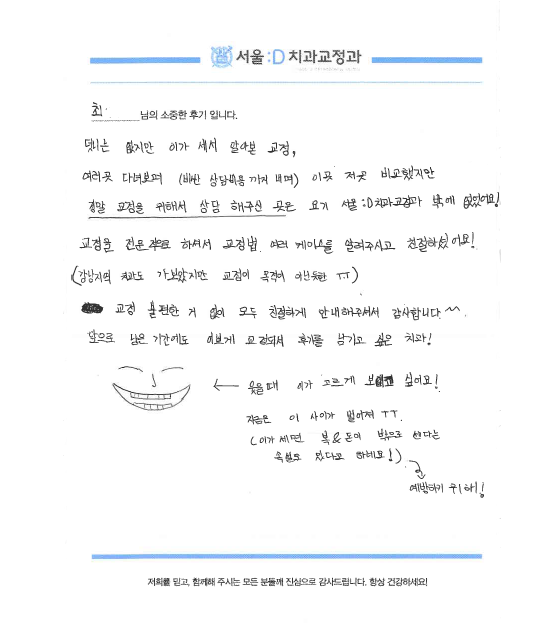 서울:D 치과교정과
최 님의 소중한 후기 입니다.
덧니는 없지만 이가 세서 알아본 교정,
여러곳 다녀보며 (비싼 상담비용 까지 내며) 이곳 저곳 비교했지만
정말 교정을 위해서 상담 해주신 곳은 여기 서울:D치과교정과 밖에 없었어요!
교정을 전문으로 하셔서 교정법, 여러 케이스를 알려주시고 친절하셨어요!
(강남지역 치과도 가보았지만 교정이 목적이 아닌듯한 ㅠㅠ)
교정 불편한 거 없이 모두 친절하게 안내해주셔서 감사합니다 ^^
앞으로 남은 기간에도 이쁘게 교정되서 후기를 남기고 싶은 치과!
← 웃을때 이가 고르게 보이고 싶어요!
지금은 이 사이가 벌어져 ㅠㅠ.
(이가 세면 복&돈이 밖으로 샌다는
속설도 있다고 하네요!)
예방하기 위해!
저희를 믿고, 함께해 주시는 모든 분들께 진심으로 감사드립니다. 항상 건강하세요!